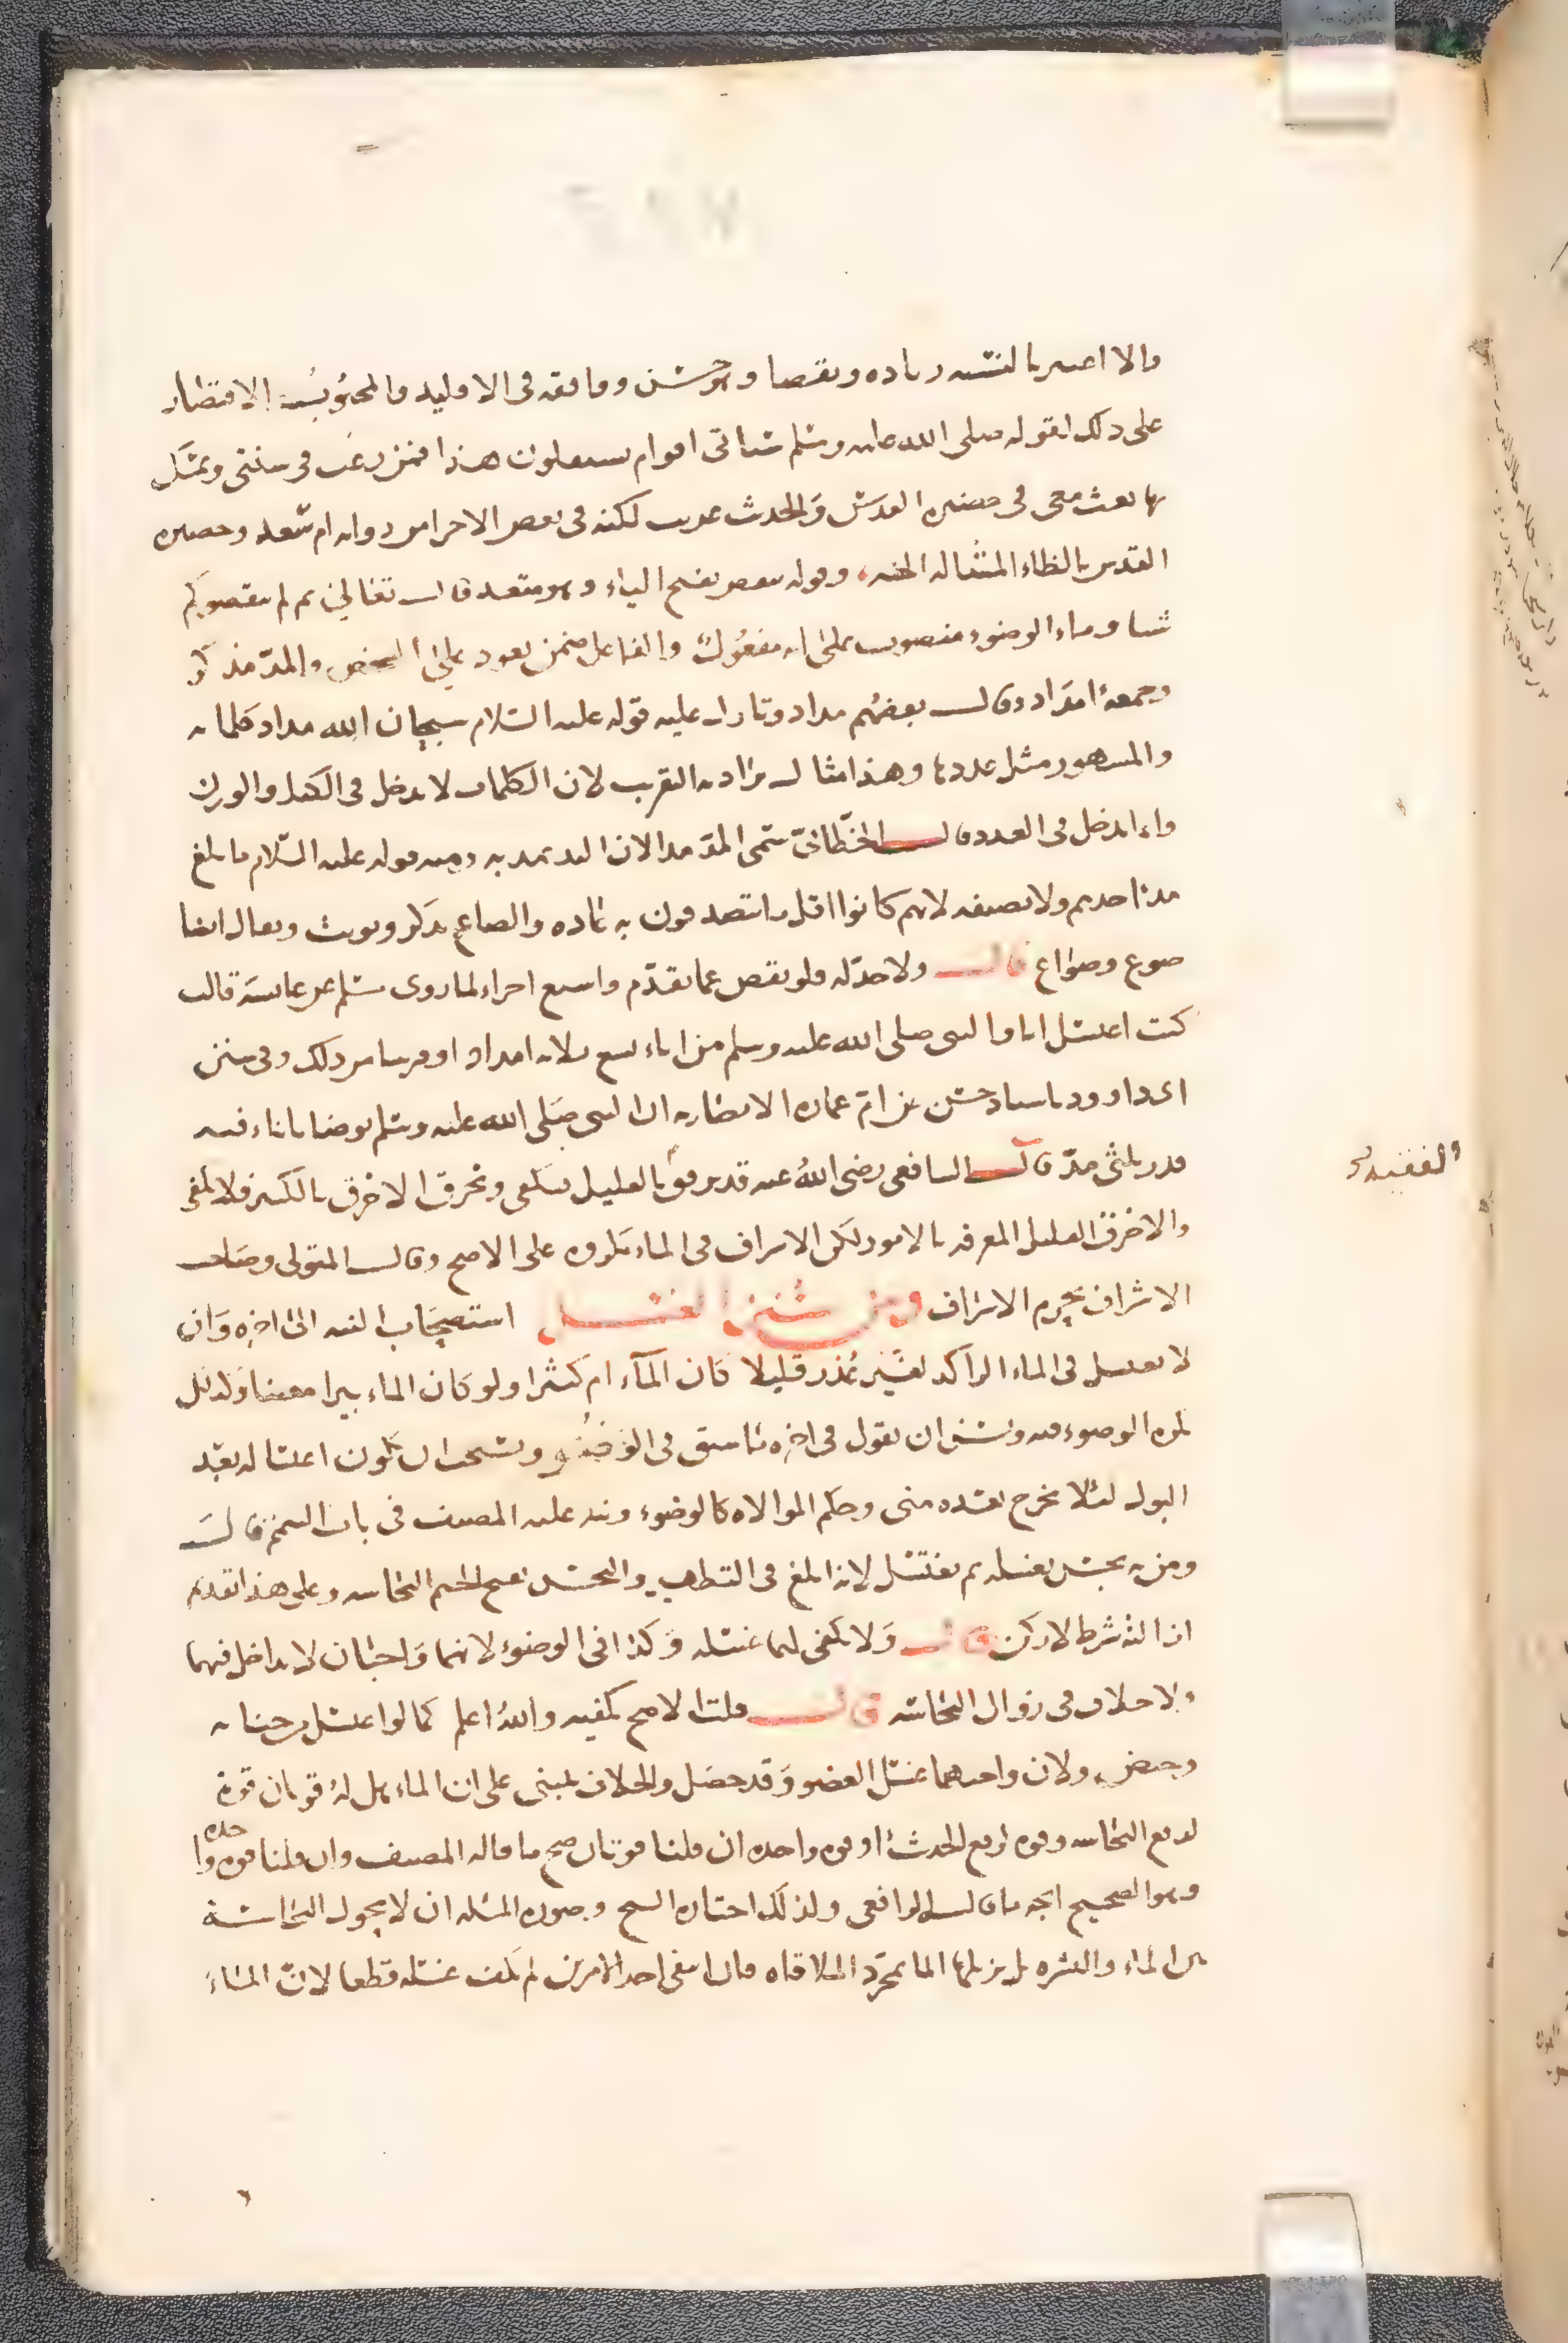 والا اعتبر بالنسبه زياده ونقصا وهو حسن ووافقه في الاقليد والمحبوب الاقتصار
على ذلك لقوله صلى الله عليه وسلم سياتي اقوام يستقلون هذا فمن رغب في سنتي وتمسك
بها بعث معي في حضيره القدس والحديث غريب لكنه في بعض الاجزا من روايه ام سعد وحضيره
القدس بالظاء المشاله الجنه، وقوله ينقص بفتح الياء وهو متعد قال تعالى ثم لم ينقصوكم
شيا وماء الوضوء منصوب على انه مفعول والفاعل مضمر يعود على الشخص والمد مذكر
وجمعه امداد وقال بعضهم مداد وتاول عليه قوله عليه السلام سبحان الله مداد كلماته
والمشهور مثل عددها وهذا مثال يراد به التقريب لان الكلمات لا تدخل في الكيل والوزن
وانما تدخل في العدد قال الخطابي سمي المد مدا لان اليد تمد به ومنه قوله عليه السلام ما بلغ
مد احدهم ولا نصيفه لانهم كانوا اقل ما يتصدقون به عاده والصاع يذكر ويونث ويقال ايضا
صوع وصواع قال ولا حد له فلو نقص عما تقدم واسبغ اجزاء لما روى مسلم عن عايشه قالت
كنت اغتسل انا والنبي صلى الله عليه وسلم من اناء يسع ثلاثه امداد او قريبا من ذلك وفي سنن
ابي داوود باسناد حسن عن ام عماره الانصاريه ان النبي صلى الله عليه وسلم توضا باناء فيه
قدر ثلثي مد قال الشافعي رضي الله عنه قد يرفق بالقليل فيكفي ويخرق الاخرق بالكثير فلا يكفي
والاخرق القليل المعرفه بالامور لكن الاسراف في الماء مكروه على الاصح وقال المتولي وصاحب
الاشراف يحرم الاسراف ومن سنن الغسل استصحاب النيه الى اخره وان
لا يغتسل في الماء الراكد لغير عذر قليلا كان الماء ام كثيرا ولو كان الماء بيرا معينا وكذلك
يكره الوضوء فيه وتسن ان يقول في اخره ما سبق في الوضوء ويستحب ان يكون اغتساله بعد
البول لئلا يخرج بعده مني وحكم الموالاه كالوضوء ونبه عليه المصنف في باب التيمم قال
ومن به نجس يغسله ثم يغتسل لانه ابلغ في التطهير والنجس بفتح الجيم النجاسه وعلى هذا تقديم
ازالته شرط لا ركن قال ولا تكفي لهما غسله وكذا في الوضوء لانهما واجبان لا تداخل فيهما
ولا خلاف في زوال النجاسه قال قلت الاصح تكفيه والله اعلم كما لو اغتسل من جنابه
وحيض ولان واجبهما غسل العضو وقد حصل والخلاف مبني على ان الماء هل له قوتان قوة
لدفع النجاسه وقوه لرفع الحدث او قوه واحده ان قلنا قوتان صح ما قاله المصنف وان قلنا قوه واحده
وهو الصحيح اتجه ما قاله الرافعي ولذلك اختاره الشيخ وصوره المسله ان لا تحول النجاسة
بين الماء والبشره بل يزيلها الما بمجرد الملاقاه فان انتفى احد الامرين لم تكف غسله قطعا لان الماء